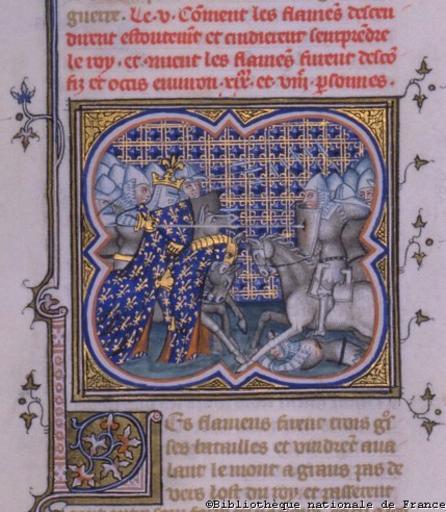 guerre. Le v. Coment les flamens descen
dirent estoutemt et cuidierent seurprendre
le roy. et 9ment les flamens furent desco
fiz et occis environ .xix. et viii. psonnes.
Les flamens firent trois gs
ses batailles et vindret aua
lant le mont a grans pas de
vers lost du roy. et passerent
©Bibliotheque nationale de France